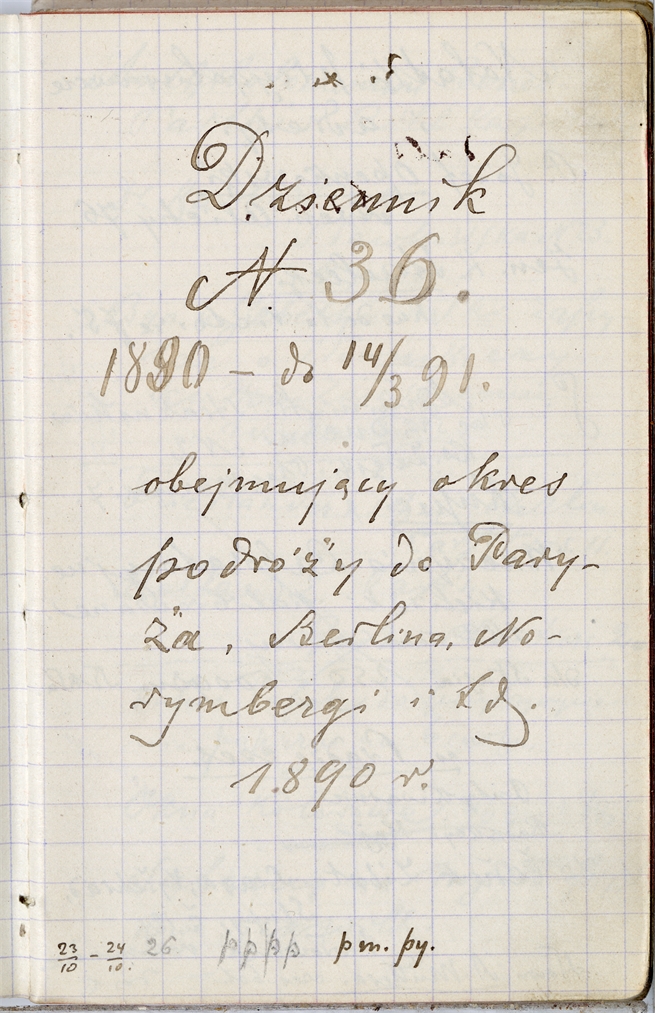 Dziennik
N. 36.
1890 – do 14/3 91.
obejmujący okres
podróży do Pary-
ża, Berlina, No-
rymbergi i t. d.
1890 r.
23/10 - 24/10. 26 pppp pm. py.